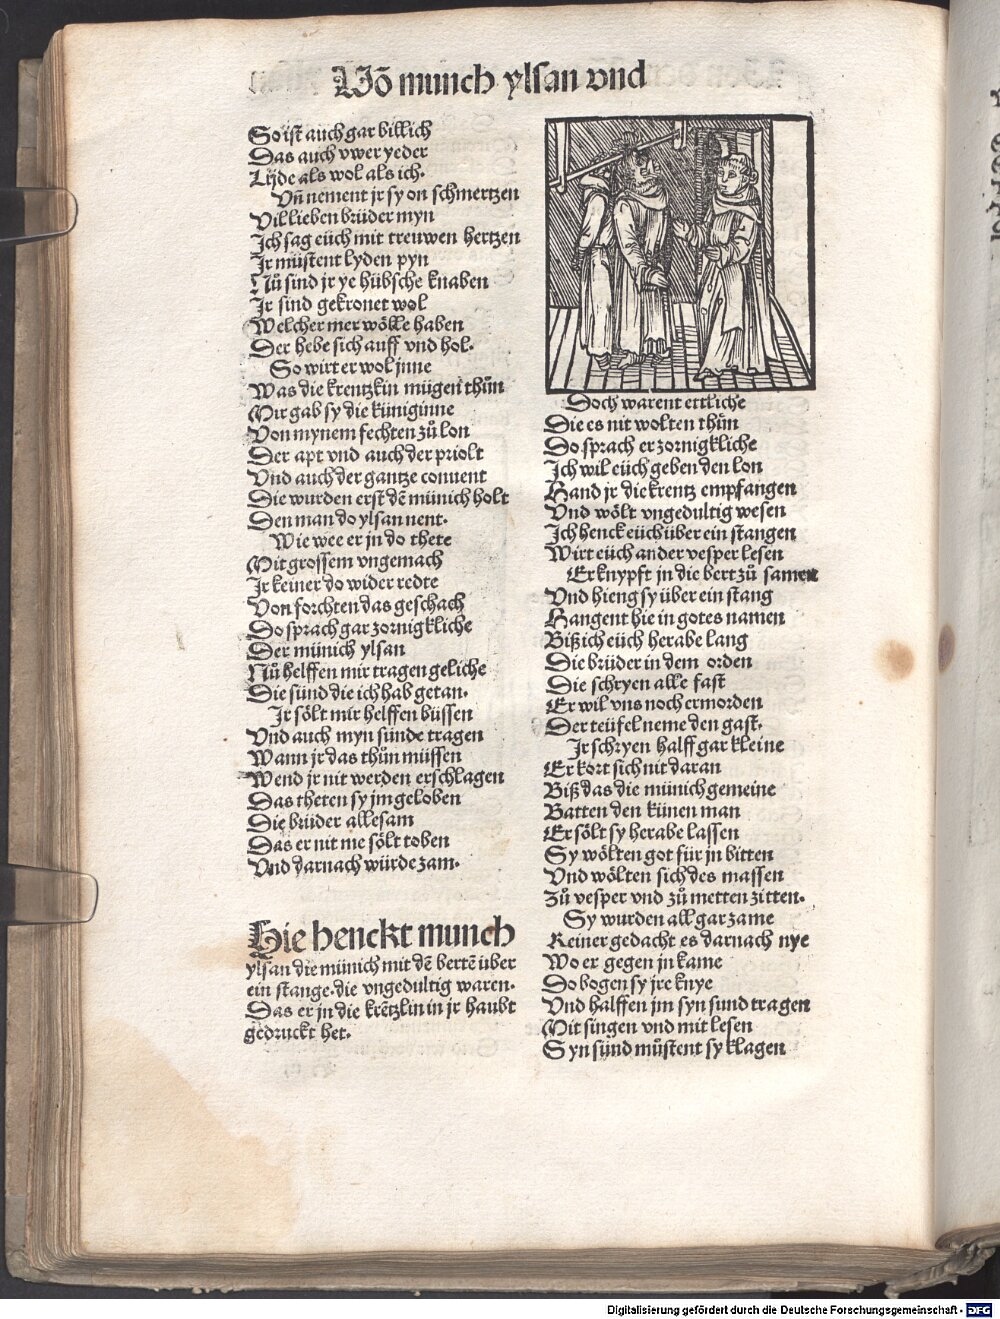 Võ munch ylsan vnd
So ist auch gar billich
Das auch vwer yeder
Lyde als wol als ich.
Vñ nement jr sy on schmertzen
Vil lieben brüder myn
Ich sag eüch mit treuwen hertzen
Ir müstent lyden pyn
Nů sind jr ye hübsche knaben
Ir sind gekronet wol
Welcher mer wölle haben
Der hebe sich auff vnd hol.
So wirt er wol jnne
Was die krentzkin mügen thůn
Mir gab sy die küniginne
Von mynem fechten zů lon
Der apt vnd auch der priolt
Vnd auch der gantze conuent
Die wurden erst dē münich holt
Den man do ylsan nent.
Wie wee er jn do thete
Mit grossem vngemach
Ir keiner do wider redte
Von forchten das geschach
Do sprach gar zornigkliche
Der münich ylsan
Nů helffen mir tragen geliche
Die sünd die ich hab getan.
Ir sölt mir helffen büssen
Vnd auch myn sünde tragen
Wann jr das thůn müssen
Wend jr nit werden erschlagen
Das theten sy jm geloben
Die brüder allesam
Das er nit me sölt toben
Vnd darnach würde zam.
Hie henckt munch
ylsan die münich mit dē bertē über
ein stange. die vngedultig waren.
Das er jn die krētzlin in jr haubt
gedruckt het.
Doch warent ettliche
Die es nit wolten thůn
Do sprach er zornigkliche
Ich wil eüch geben den lon
Hand jr die krentz empfangen
Vnd wölt vngedultig wesen
Ich henck eüch über ein stangen
Wirt eüch ander vesper lesen
Er knypft jn die bert zů samen
Vnd hieng sy über ein stang
Hangent hie in gotes namen
Biß ich eüch herabe lang
Die brüder in dem orden
Die schryen alle fast
Er wil vns noch ermorden
Der teüfel neme den gast.
Ir schryen halff gar kleine
Er kort sich nit daran
Biß das die münich gemeine
Batten den künen man
Er sölt sy herabe lassen
Sy wölten got für jn bitten
Vnd wölten sich des massen
Zů vesper vnd zů metten zitten.
Sy wurden all gar zame
Keiner gedacht es darnach nye
Wo er gegen jn kame
Do bogen sy jre knye
Vnd halffen jm syn sund tragen
Mit singen vnd mit lesen
Syn sünd můstent sy klagen
Digitalisierung gefördert durch die Deutsche Forschungsgemeinschaft - DFG